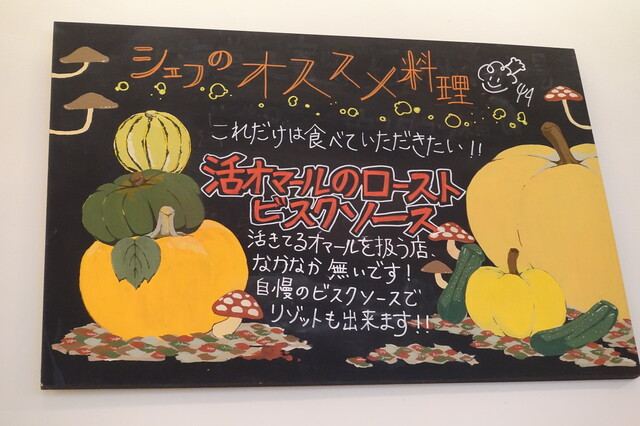 シェフのオススメ料理
これだけは食べていただきたい!!
活オマールのロースト
ビスクソース
活きてるオマールを扱う店、
なかなか無いです!
自慢のビスクソースで
リゾットも出来ます!!